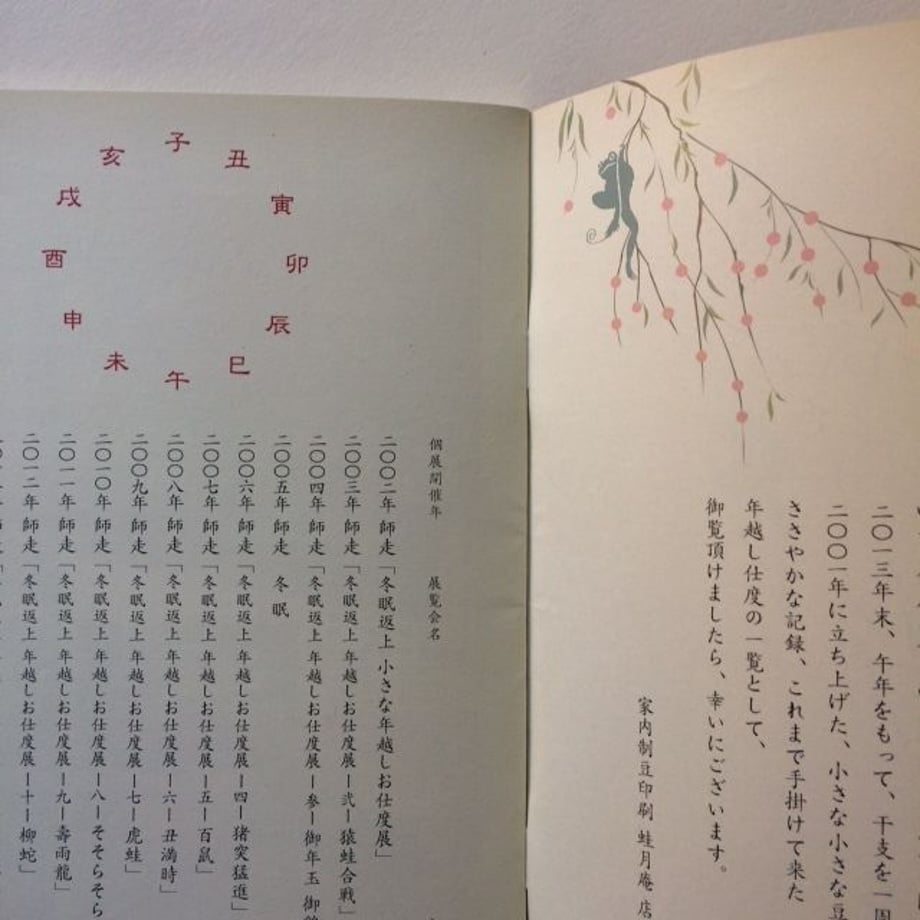 二〇一三年末、午年をもって、干支を一周
二〇〇一年に立ち上げた、小さな小さな豆
ささやかな記録、これまで手掛けて来た
年越し仕度の一覧として、
御覧頂けましたら、幸いにございます。
家内制豆印刷 蛙月庵 店
子
丑
寅
卯
辰
巳
午
未
申
酉
戌
亥
個展開催年 展覧会名
二〇〇二年 師走「冬眠返上 小さな年越しお仕度展」
二〇〇三年 師走「冬眠返上 年越しお仕度展ー弐ー猿蛙合戦」
二〇〇四年 師走「冬眠返上 年越しお仕度展ー参ー御年玉 御
二〇〇五年 師走 冬眠
二〇〇六年 師走「冬眠返上 年越しお仕度展ー四ー猪突猛進」
二〇〇七年 師走「冬眠返上 年越しお仕度展ー五ー百鼠」
二〇〇八年 師走「冬眠返上 年越しお仕度展ー六ー丑満時」
二〇〇九年 師走「冬眠返上 年越しお仕度展ー七ー虎蛙」
二〇一〇年 師走「冬眠返上 年越しお仕度展ー八ーそそらそら
二〇一一年 師走「冬眠返上 年越しお仕度展ー九ー壽雨龍」
二〇一二年 師走「冬眠返上 年越しお仕度展ー十ー柳蛇」